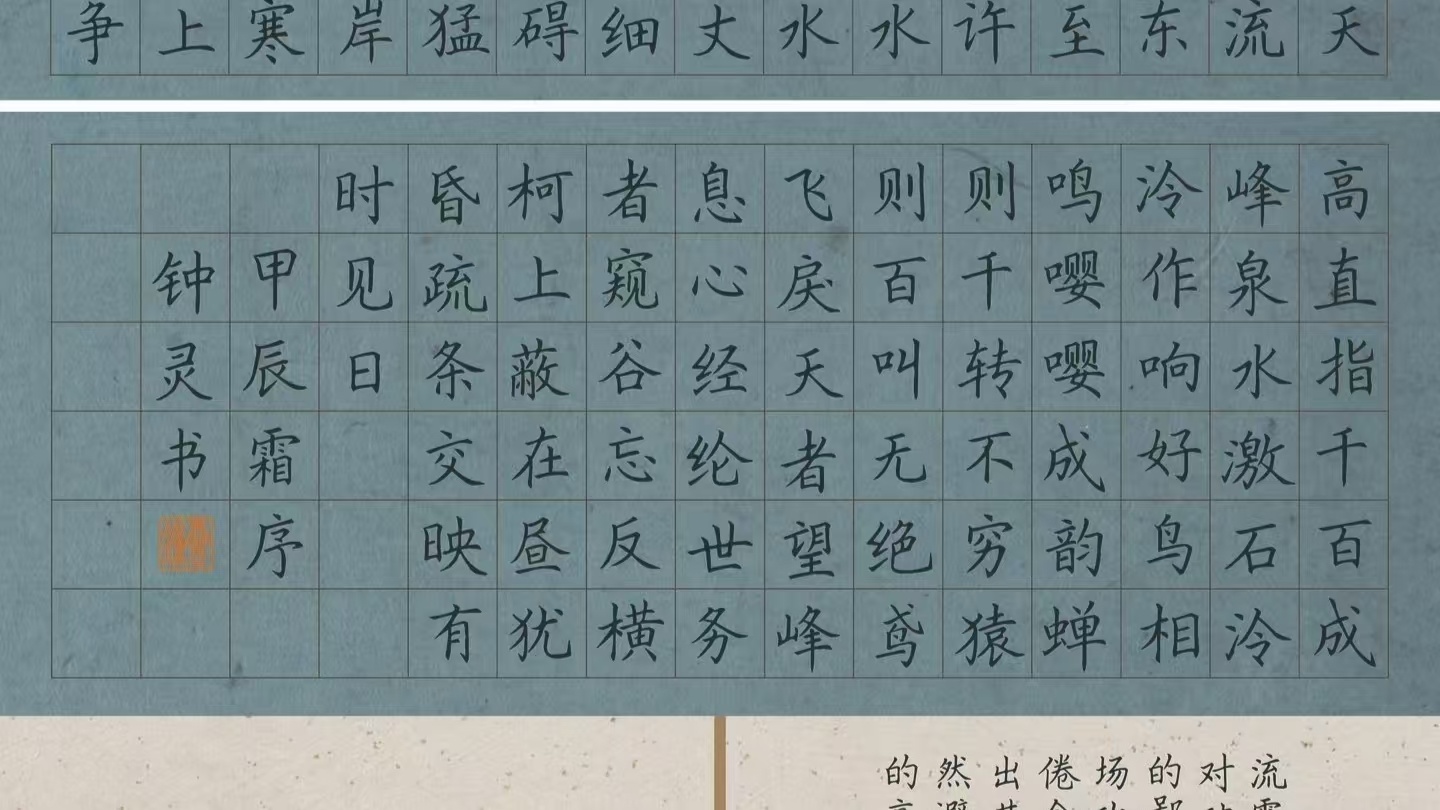 天
流
东
至
许
水
水
丈
细
碍
猛
岸
寒
上
争
高直指千百成
峰泉水激石泠
泠作响好鸟相
鸣嘤嘤成韵蝉
则千转不穷猿
则百叫无绝鸢
飞戾天者望峰
息心经纶世务
者窥谷忘反横
柯上蔽在昼犹
昏疏条交映有
时见日
甲辰霜序
钟灵书
流
对
的
场
倦
出
然
的